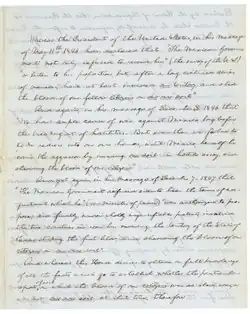 Whereas the President of the United States, in his message
of May 11th 1846, has declared that "The Mexican Govern-
ment not only refused to receive him" (the envoy of the U.S.)
"or listen to his propositions, but after a long continued series
of menaces, have at last invaded our territory, and shed
the blood of our fellow citizens on our own soil"
And again, in his message of December 8, 1846 that
"We had ample cause of war against Mexico, long before
the breaking out of hostilities. But even then we forbore
to take redress into our own hands, until Mexico herself be-
came the aggressor by invading our soil in hostile array, and
shedding the blood of our citizens"
And yet again, in his message of December 7, 1847 that
"The Mexican Government refused even to hear the terms of ad-
justment which he (our minister of peace) was authorized to pro-
pose; and finally, under wholly unjustifiable pretexts, involved
the two countries in war, by invading the territory of the State of
Texas, striking the first blow, and shedding the blood of our
citizens on our own soil"
And whereas this House desires to obtain a full knowledge
of all the facts which go to establish whether the particular
spot of soil on which the blood of our citizens was so shed, was,
or was not, our own soil, at that time; therefore